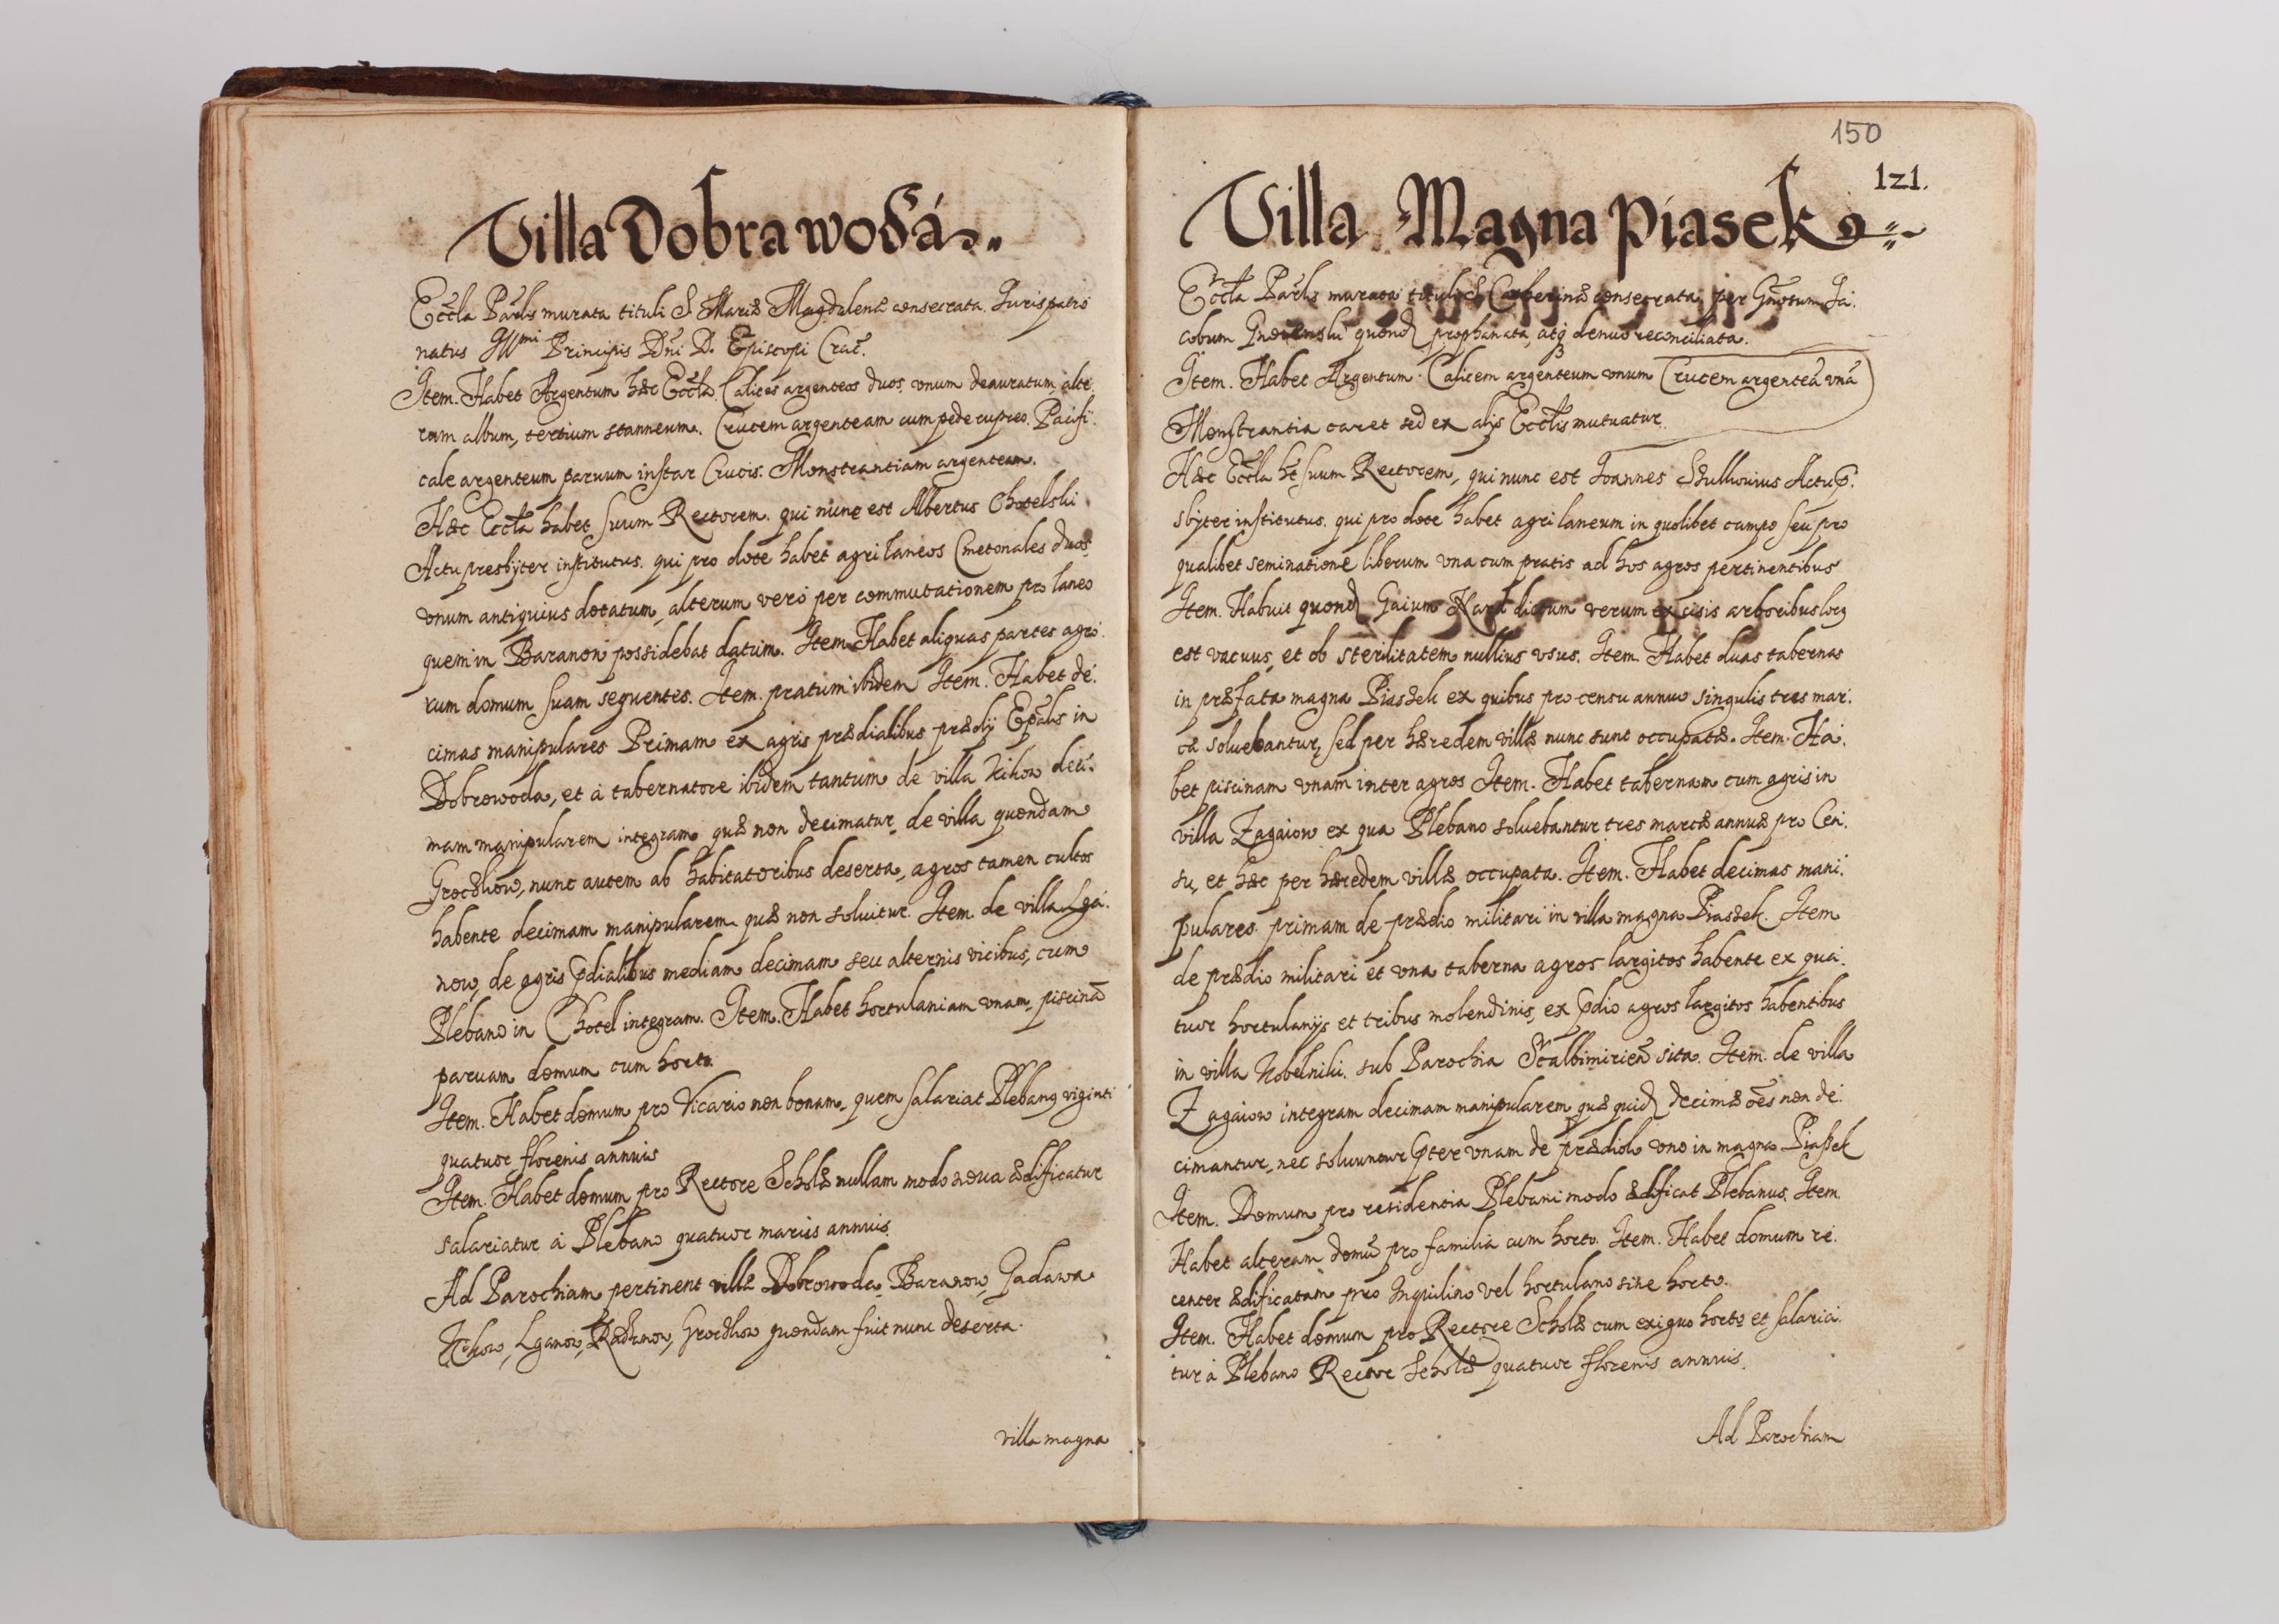 Villa Dobrawodá
Eccła Parłis murata tituli S Mariæ Magdalenæ consecrata. Jurispatro
natus Illmi Principis Dni D. Episcopi Crac.
Item. Habet Argentum hæc Eccła. Calices argenteos duos, vnum deauratum, alte
rum album, tertium stanneum. Crucem argenteam cum pede cupreo. Pacifi
cale argenteum paruum instar Crucis. Monstrantiam argenteam.
Hæc Eccła habet suum Rectorem. qui nunc est Albertus Chotelski
Actu presbyter institutus. qui pro dote habet agri laneos Cmetonales duos
vnum antiquius dotatum, alterum vero per commutationem pro laneo
quem in Baranow possidebat datum. Item Habet aliquas partes agro
rum domum suam sequentes. Item. pratum ibidem Item. Habet de
cimas manipulares Primam ex agris prædialibus prædij Epalis in
Dobrowoda, et à tabernatore ibidem tantum de villa Kikow deci
mam manipularem integram quæ non decimatur, de villa quondam
Grochow, nunc autem ab habitatoribus deserta, agros tamen cultos
habente decimam manipularem quæ non soluitur. Item de villa Lga
now, de agris pdialibus mediam decimam seu alternis vicibus, cum
Plebano in Chotel integram. Item. Habet hortulaniam vnam, piscinā
paruam domum cum horto.
Item. Habet domum pro Vicario non bonam, quem salariat Plebanus viginti
quatuor florenis annuis
Item. Habet domum pro Rectore Scholæ nullam modo noua ædificatur
salariatur à Plebano quatuor marcis annuis.
Ad Parochiam pertinent villæ Dobrowoda, Baranow, Gadawa
Kikow, Lganow, Radzanow, Grochow quondam fuit nunc deserta.
villa magna
150
121.
Villa Magna Piasek
Eccła Parłis murata tituli S Catherinæ consecrata, per Gnosum Ja
cobum Gnoienski quond prophanata, atq denuo reconciliata.
Item. Habet Argentum. Calicem argenteum vnum Crucem argenteā vnā
Monstrantia caret sed ex alijs Eccłis mutuatur.
Hæc Eccła het suum Rectorem, qui nunc est Joannes Actu p
sbyter institutus. qui pro dote habet agri laneum in quolibet campo seu pro
qualibet seminatione liberum vna cum pratis ad hos agros pertinentibus
Item. Habuit quond Gaium dictum verum excisis arboribus locus
est vacuus, et ob sterilitatem nullius vsus. Item. Habet duas tabernas
in præfata magna Piassek ex quibus pro censu annuo singulis tres mar
cæ soluebantur, sed per hæredem villæ nunc sunt occupatæ. Item. Ha
bet piscinam vnam inter agros Item. Habet tabernam cum agris in
villa Zagaiow ex qua Plebano soluebantur tres marcæ annuæ pro Cen
su, et hæc per hæredem villæ occupata. Item. Habet decimas mani
pulares primam de prædio militari in villa magna Piassek. Item
de prædio militari et vna taberna agros largitos habente ex qua
tuor hortulanijs et tribus molendinis, ex pdio agros largitos habentibus
in villa Kobelniki. sub Parochia Scalbimirien sita. Item. de villa
Zagaiow integram decimam manipularem quæ quid decimæ oēs non de
cimantur, nec soluuntur pter vnam de prædiolo vno in magna Piassek
Item. Domum pro residentia Plebani modo ædificat Plebanus. Item
Habet alteram domū pro familia cum horto. Item. Habet domum re
center ædificatam pro Inquilino vel hortulano sine horto.
Item. Habet domum pro Rectore Scholæ cum exiguo horto et salaria
tur à Plebano Rector Scholæ quatuor florenis annuis.
Ad Parochiam